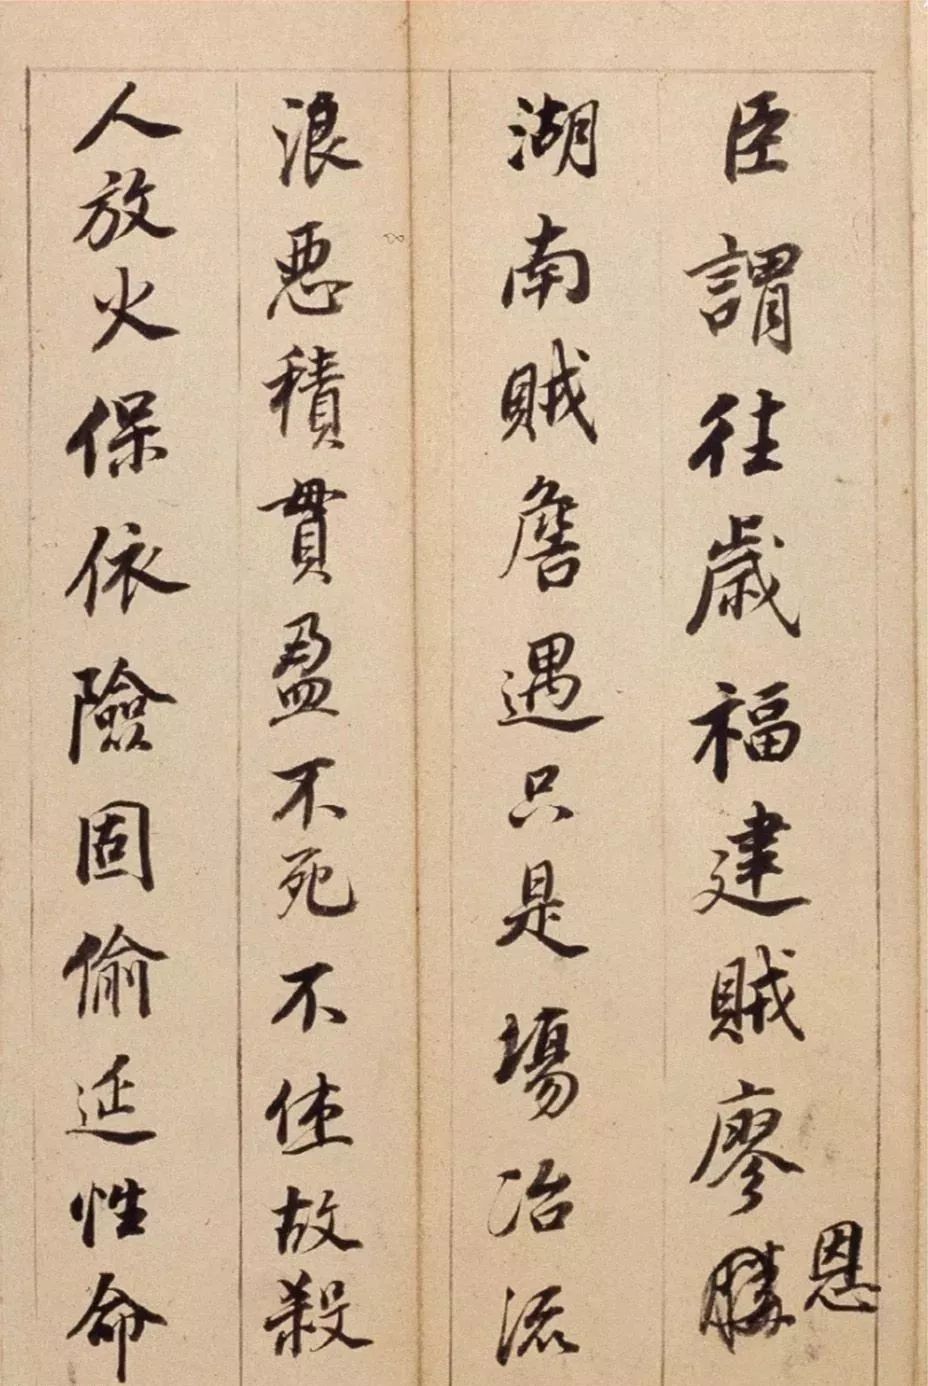 臣謂往歲福建賊廖勝恩
湖南賊詹遇只是場冶流
浪惡積貫盈不死不住故殺
人放火保依險固偷延性命